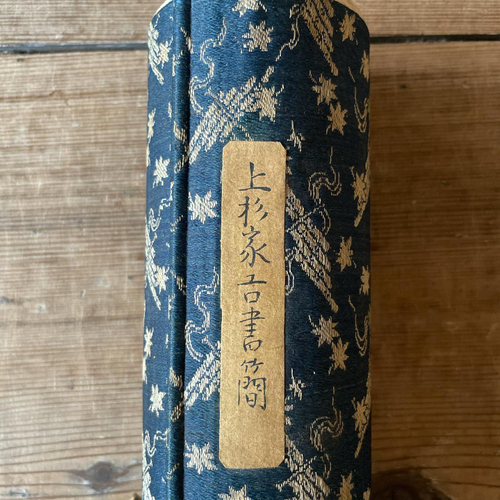 上杉家書簡